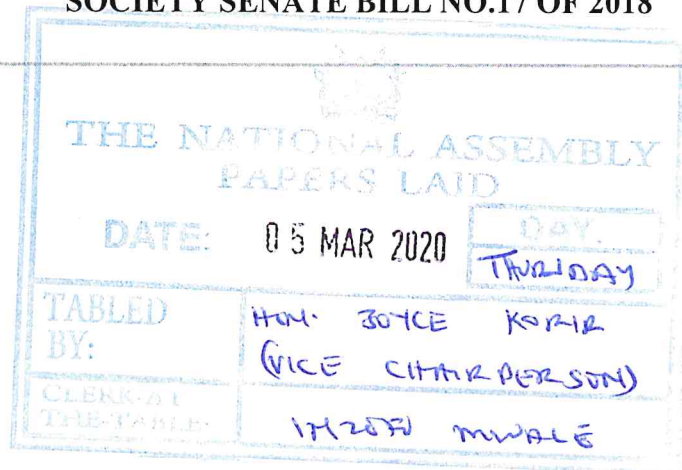 SOCIETY SENATE BILL NO.17 OF 2018
THE NATIONAL ASSEMBLY
PAPERS LAID
DATE: 05 MAR 2020 DAY.
THURSDAY
TABLED BY: HON. JOYCE KORIR
(VICE CHAIRPERSON)
CLERK-AT
THE-TABLE: MWALE